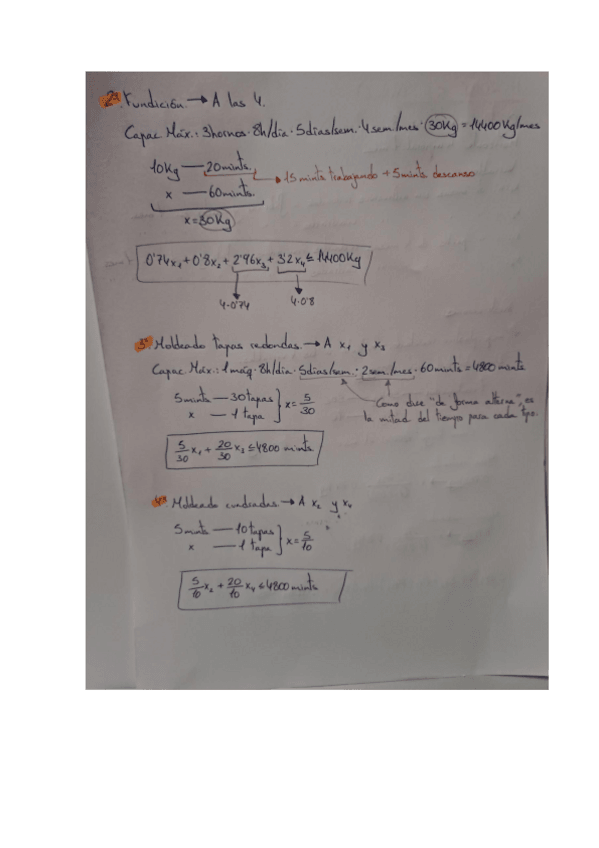 2ª. Fundición → A las 4.
Capac. Máx.: 3 hornos · 8h/día · 5 días/sem. · 4 sem./mes · 30Kg = 14400 Kg/mes
10Kg — 20 mints.
→ 15 mints trabajando + 5 mints descanso
x — 60 mints.
x = 30 Kg
0'74x₁ + 0'8x₂ + 2'96x₃ + 3'2x₄ ≤ 14400 Kg
4·0'74 4·0'8
3ª. Moldeado tapas redondas → A x₁ y x₃
Capac. Máx.: 1 máq · 8h/día · 5 días/sem. · 2 sem./mes · 60 mints = 4800 mints
5 mints — 30 tapas
x — 1 tapa } x = 5/30
Como dice "de forma alterna", es
la mitad del tiempo para cada tipo.
5/30 x₁ + 20/30 x₃ ≤ 4800 mints
4ª. Moldeado cuadradas → A x₂ y x₄
5 mints — 10 tapas
x — 1 tapa } x = 5/10
5/10 x₂ + 20/10 x₄ ≤ 4800 mints